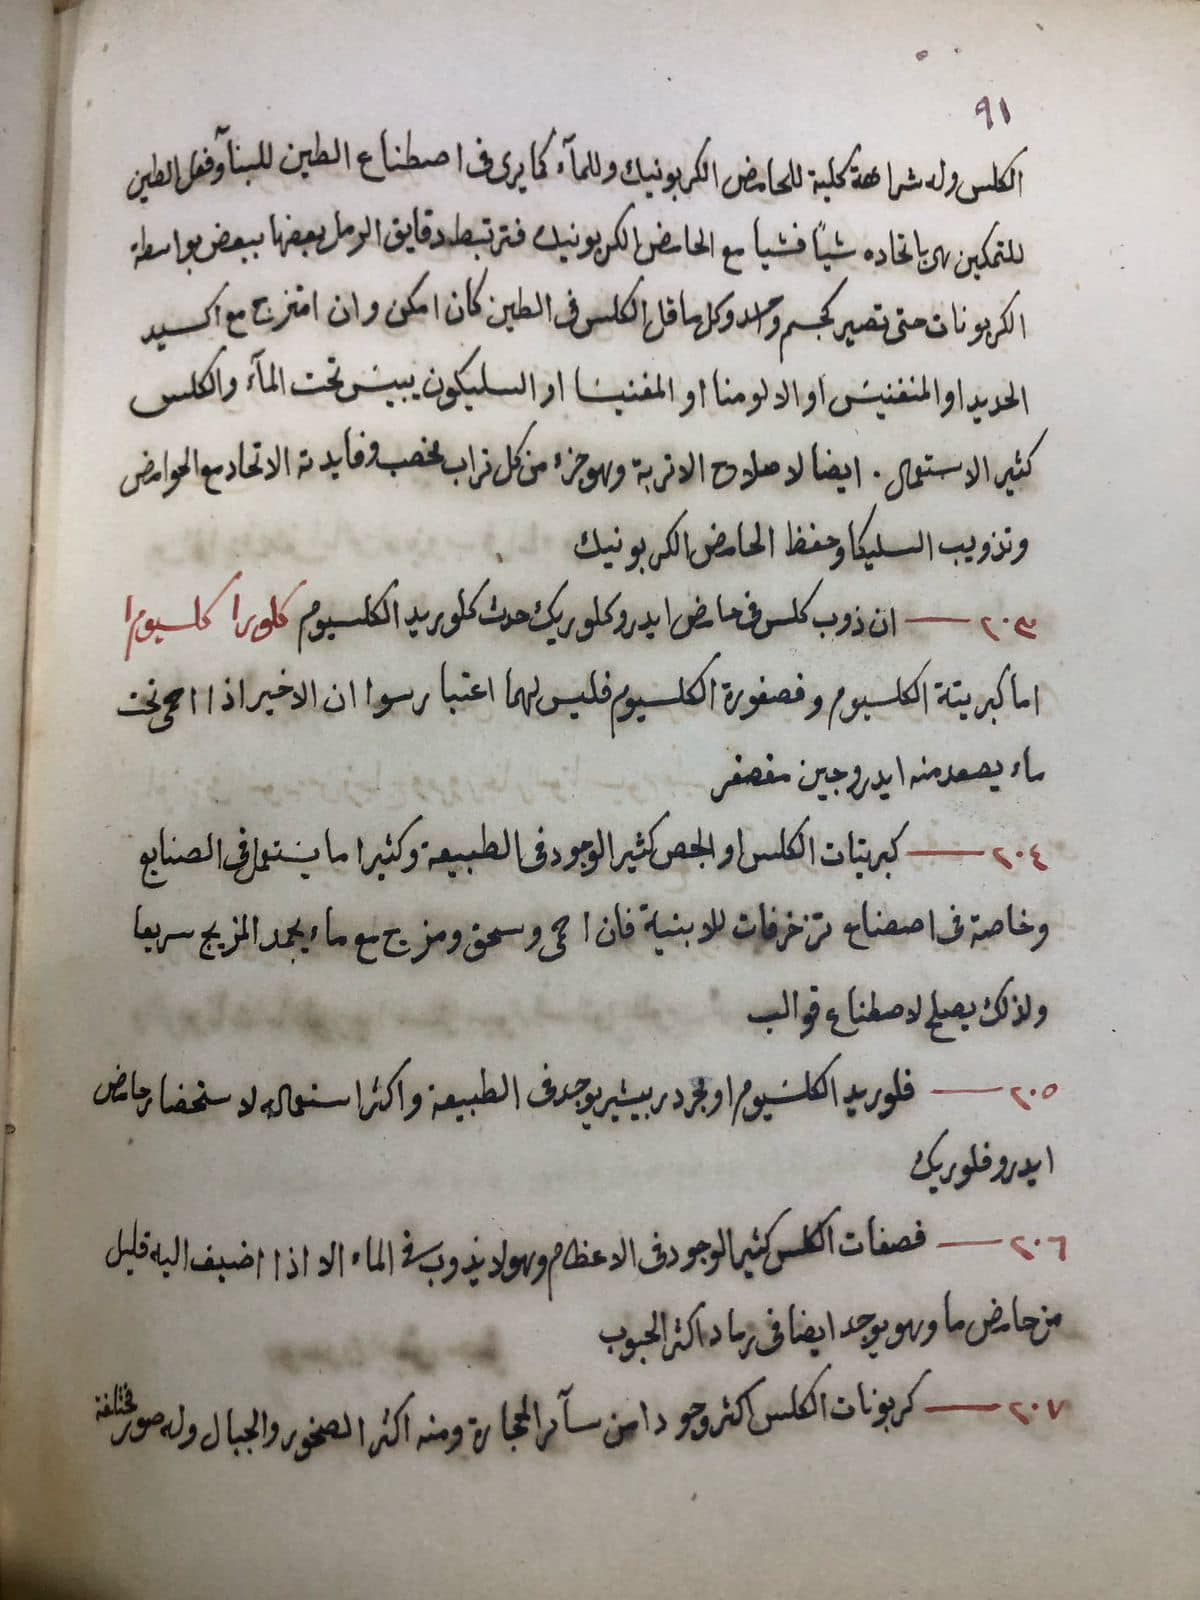 ٩١
الكلس وله شراهة كلية للحامض الكربونيك وللمآء كما يرى فى اصطناع الطين للبنآ وفعل الطين
للتمكين هى باتحاده شيًا فشيا مع الحامض الكربونيك فترتبط دقايق الرمل بعضها ببعض بواسطة
الكربونات حتى تصير كجسم واحد وكل ما قل الكلس فى الطين كان امكن وان امتزج مع اكسيد
الحديد او المنغنيس او الالومنا او المغنيسا او السليكون يبيس تحت المآء والكلس
كثير الاستعمال . ايضا لاصلاح الاتربة وهو جزء من كل تراب مخصب وفايدته الاتحاد مع الحوامض
وتذويب السليكا وحفظ الحامض الكربونيك
٢٠٣ — ان ذوب كلس فى حامض ايدروكلوريك حدث كلوريد الكلسيوم كلورا كلسيوم ا
اما كبريتة الكلسيوم وفصفورة الكلسيوم فليس لهما اعتبار سوا ان الاخير اذا احمى تحت
ماء يصعد منه ايدروجين مفصفر
٢٠٤ — كبريتات الكلس او الجص كثير الوجود فى الطبيعة وكثيرا ما يستعمل فى الصنايع
وخاصة فى اصصناع تزخرفات للابنية فان احمى وسحق ومزج مع ماء يجمد المزيج سريعا
ولذلك يصلح لاصطناع قوالب
٢٠٥ — فلوريد الكلسيوم او بيشير يوجد فى الطبيعة واكثر استعماله لاستحضار حامض
ايدروفلوريك
٢٠٦ — فصفات الكلس كثير الوجود فى الاعظام وهو لا يذوب فى الماء الا اذا اضيف اليه قليل
من حامض ما وهو يوجد ايضا فى رماد اكثر الحبوب
٢٠٧ — كربونات الكلس اكثر وجودا من سآئر الحجارة ومنه اكثر الصخور والجبال وله صور مختلفة